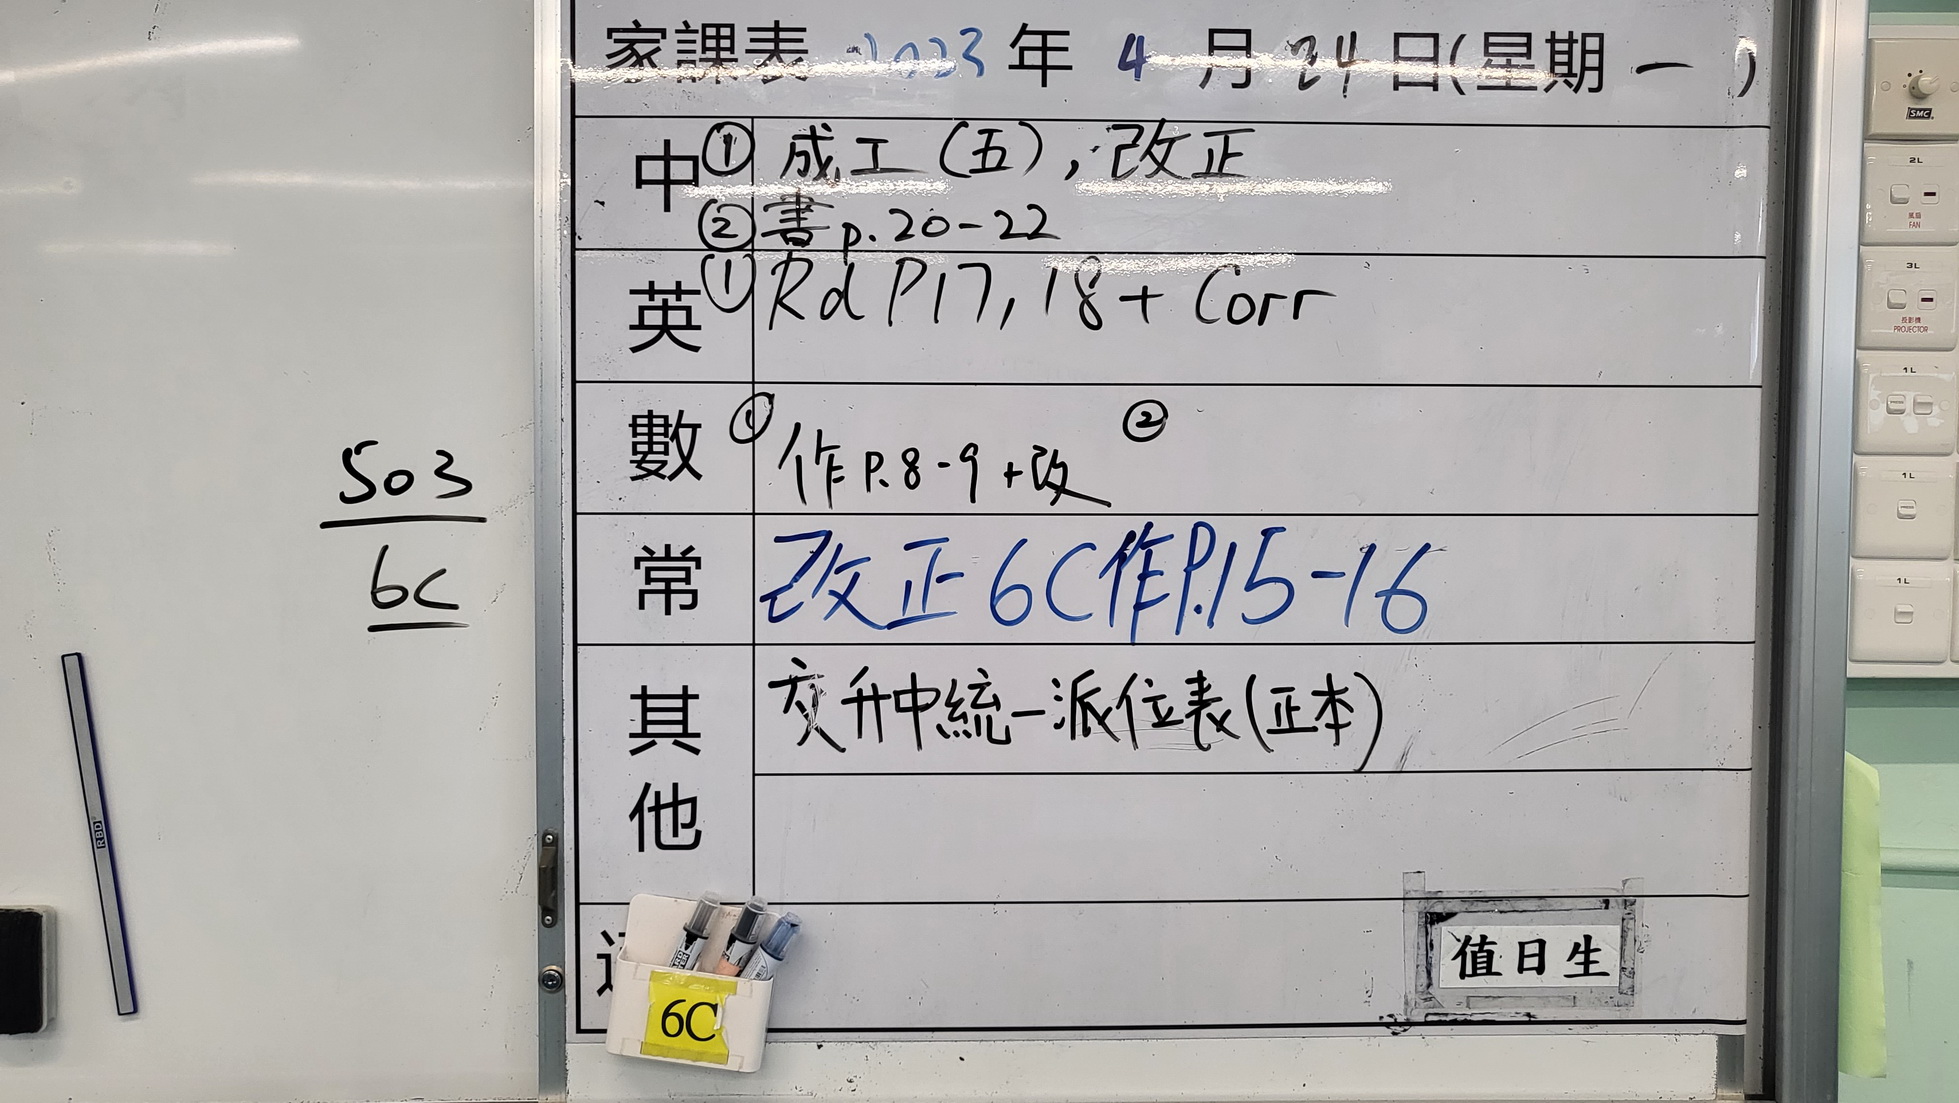 家課表 2023年 4月24日(星期一)
中 ① 成工(五),改正
② 書p.20-22
英 ① Rd P17, 18 + Corr
數 ① 作P.8-9+改 ②
常 改正6C作P.15-16
其他 交升中統一派位表(正本)
值日生
6C
503
6C
RBD
SMC
2L
風扇
FAN
3L
投影機
PROJECTOR
1L
1L
1L